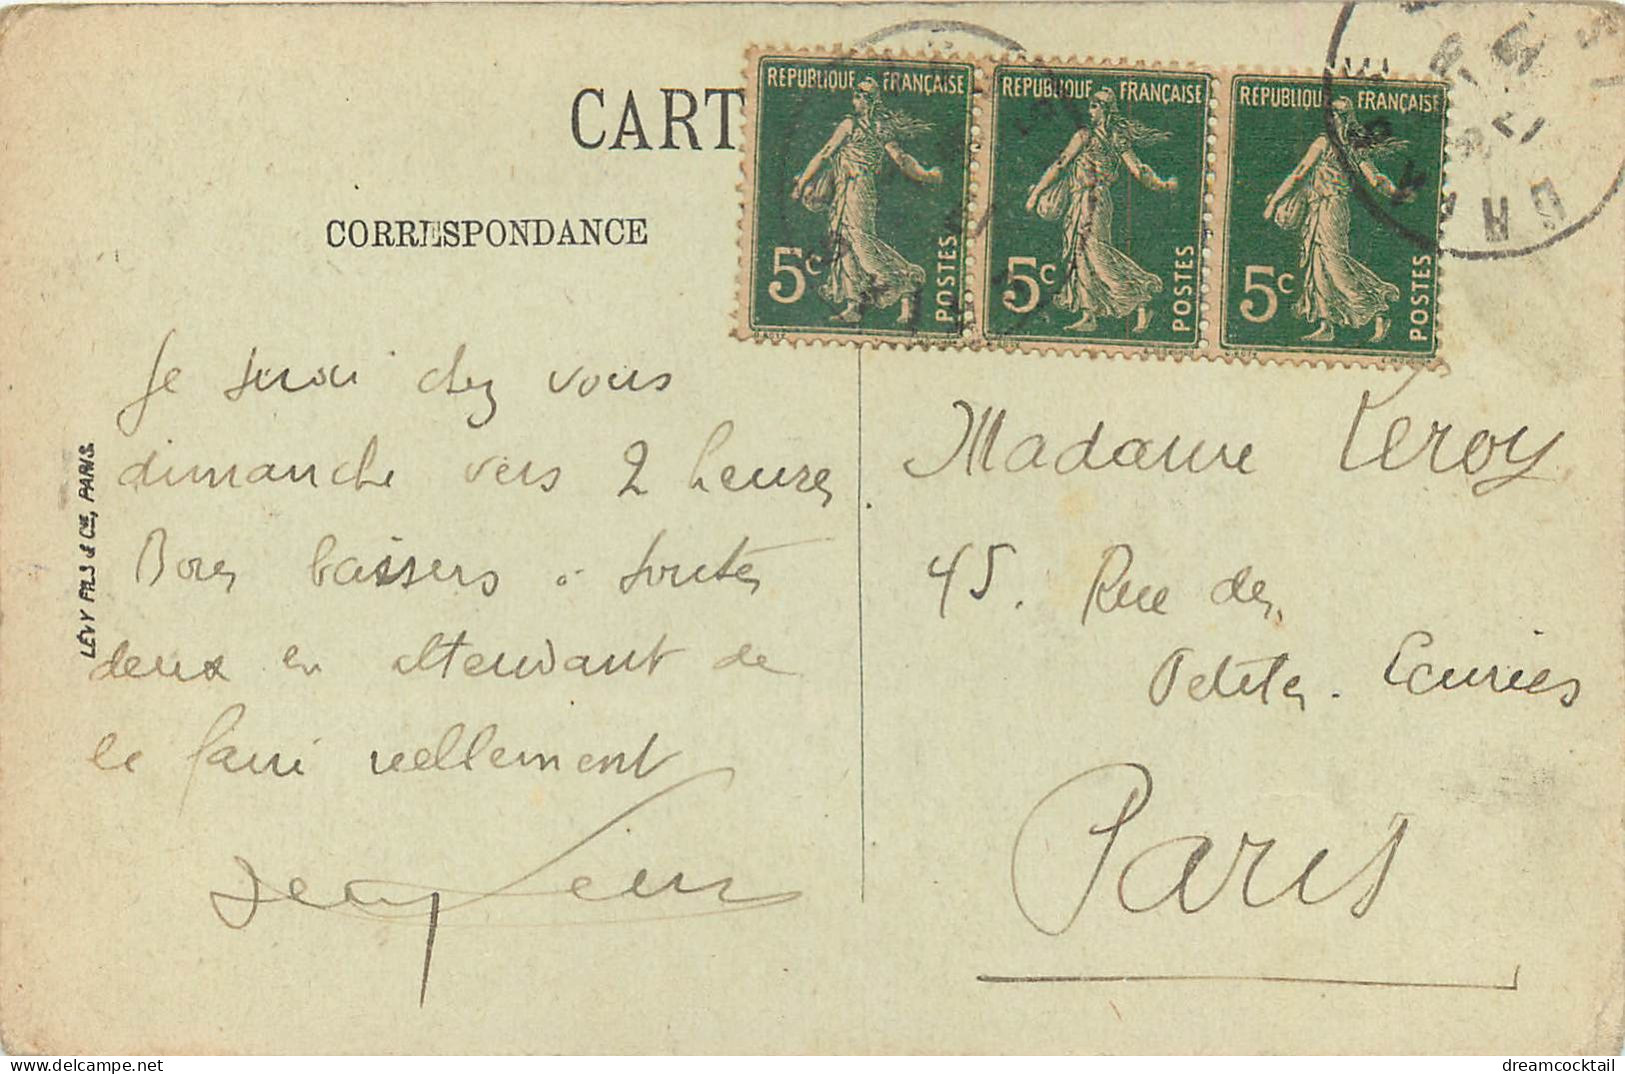 CART
CORRESPONDANCE
REPUBLIQUE FRANÇAISE
5c
POSTES
REPUBLIQUE FRANÇAISE
5c
POSTES
REPUBLIQUE FRANÇAISE
5c
POSTES
Je serai chez vous
dimanche vers 2 heures
Bons baisers à toutes
deux en attendant de
le faire réellement
LÉVY FILS & Cie, PARIS.
Madame Leroy
45. Rue des
Petites-Ecuries
Paris
Delcampe.net
dreamcocktail